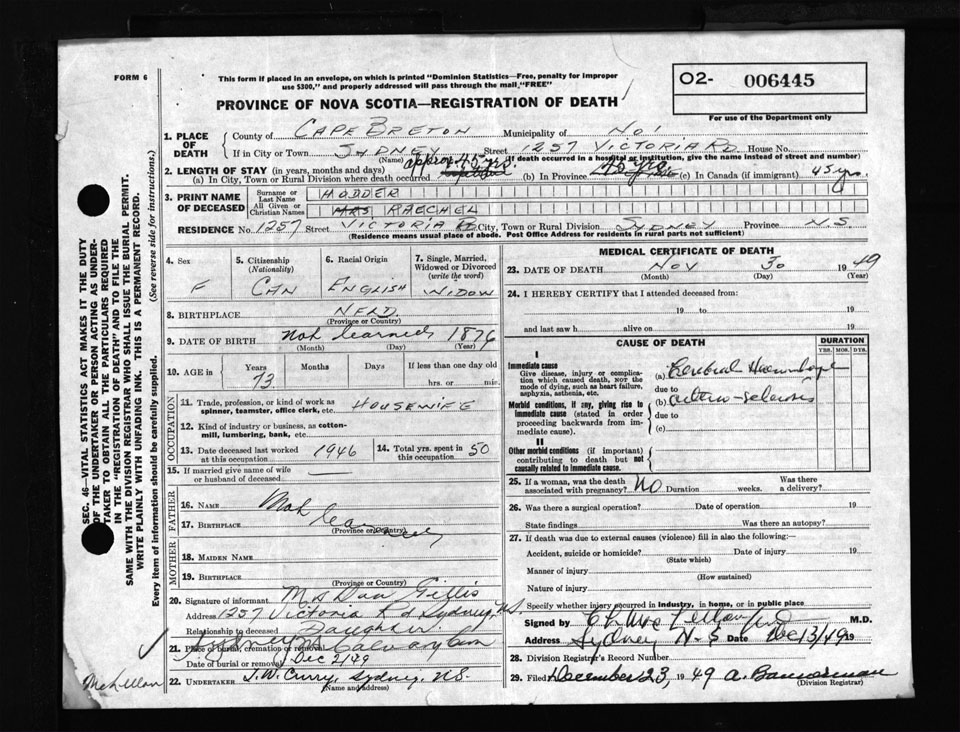 FORM 6
This form if placed in an envelope, on which is printed "Dominion Statistics—Free, penalty for improper
use $300," and properly addressed will pass through the mail, "FREE"
O2- 006445
For use of the Department only
PROVINCE OF NOVA SCOTIA—REGISTRATION OF DEATH
1. PLACE OF DEATH
County of CAPE BRETON Municipality of No 1
If in City or Town SYDNEY Street 1257 VICTORIA RD House No.
(Name) (If death occurred in a hospital or institution, give the name instead of street and number)
2. LENGTH OF STAY (in years, months and days) approx 45 yrs.
(a) In City, Town or Rural Division where death occurred (b) In Province 45 yrs (c) In Canada (if immigrant) 45 yrs.
3. PRINT NAME OF DECEASED
Surname or Last Name HODDER
All Given or Christian Names MRS RAECHEL
RESIDENCE No. 1257 Street VICTORIA RD City, Town or Rural Division SYDNEY Province N.S.
(Residence means usual place of abode. Post Office Address for residents in rural parts not sufficient)
4. Sex F
5. Citizenship (Nationality) CAN
6. Racial Origin ENGLISH
7. Single, Married, Widowed or Divorced (write the word) WIDOW
8. BIRTHPLACE NFLD.
(Province or Country)
9. DATE OF BIRTH Not learned 1876
(Month) (Day) (Year)
10. AGE in Years 73 Months Days If less than one day old
hrs. or min.
OCCUPATION
11. Trade, profession, or kind of work as spinner, teamster, office clerk, etc. HOUSEWIFE
12. Kind of industry or business, as cotton-mill, lumbering, bank, etc.
13. Date deceased last worked at this occupation 1946
14. Total yrs. spent in this occupation 50
15. If married give name of wife or husband of deceased —
FATHER
16. NAME Not
17. BIRTHPLACE learned
(Province or Country)
MOTHER
18. MAIDEN NAME
19. BIRTHPLACE
(Province or Country)
20. Signature of informant Mrs Dan Gillis
Address 1257 Victoria Rd Sydney, N.S.
Relationship to deceased Daughter
21. Place of burial, cremation or removal Sydney Calvary Cem
Date of burial or removal Dec 2/49
22. UNDERTAKER T.W. Curry, Sydney, N.S.
(Name and Address)
MEDICAL CERTIFICATE OF DEATH
23. DATE OF DEATH NOV 30 1949
(Month) (Day) (Year)
24. I HEREBY CERTIFY that I attended deceased from:
19 to 19
and last saw h alive on 19
CAUSE OF DEATH
DURATION
YRS. MOS. DYS.
I
Immediate cause
Give disease, injury or complication which caused death, not the mode of dying, such as heart failure, asphyxia, asthenia, etc.
(a) Cerebral Haemorrhage
due to
Morbid conditions, if any, giving rise to immediate cause (stated in order proceeding backwards from immediate cause).
(b) arterio-sclerosis
due to
(c)
II
Other morbid conditions (if important) contributing to death but not causally related to immediate cause.
25. If a woman, was the death associated with pregnancy? NO Duration weeks. Was there a delivery?
26. Was there a surgical operation? Date of operation 19
State findings Was there an autopsy?
27. If death was due to external causes (violence) fill in also the following:—
Accident, suicide or homicide? Date of injury 19
(State which)
Manner of injury
(How sustained)
Nature of injury
Specify whether injury occurred in industry, in home, or in public place
Signed by M.D.
Address Sydney N-S Date Dec 13/49 19
28. Division Registrar's Record Number
29. Filed December 23, 1949 A. Bannerman
(Division Registrar)
SEC. 46—VITAL STATISTICS ACT MAKES IT THE DUTY
OF THE UNDERTAKER OR PERSON ACTING AS UNDER-
TAKER TO OBTAIN ALL THE PARTICULARS REQUIRED
IN THE "REGISTRATION OF DEATH" AND TO FILE THE
SAME WITH THE DIVISION REGISTRAR WHO SHALL ISSUE THE BURIAL PERMIT.
WRITE PLAINLY WITH UNFADING INK. THIS IS A PERMANENT RECORD.
Every item of information should be carefully supplied. (See reverse side for instructions.)